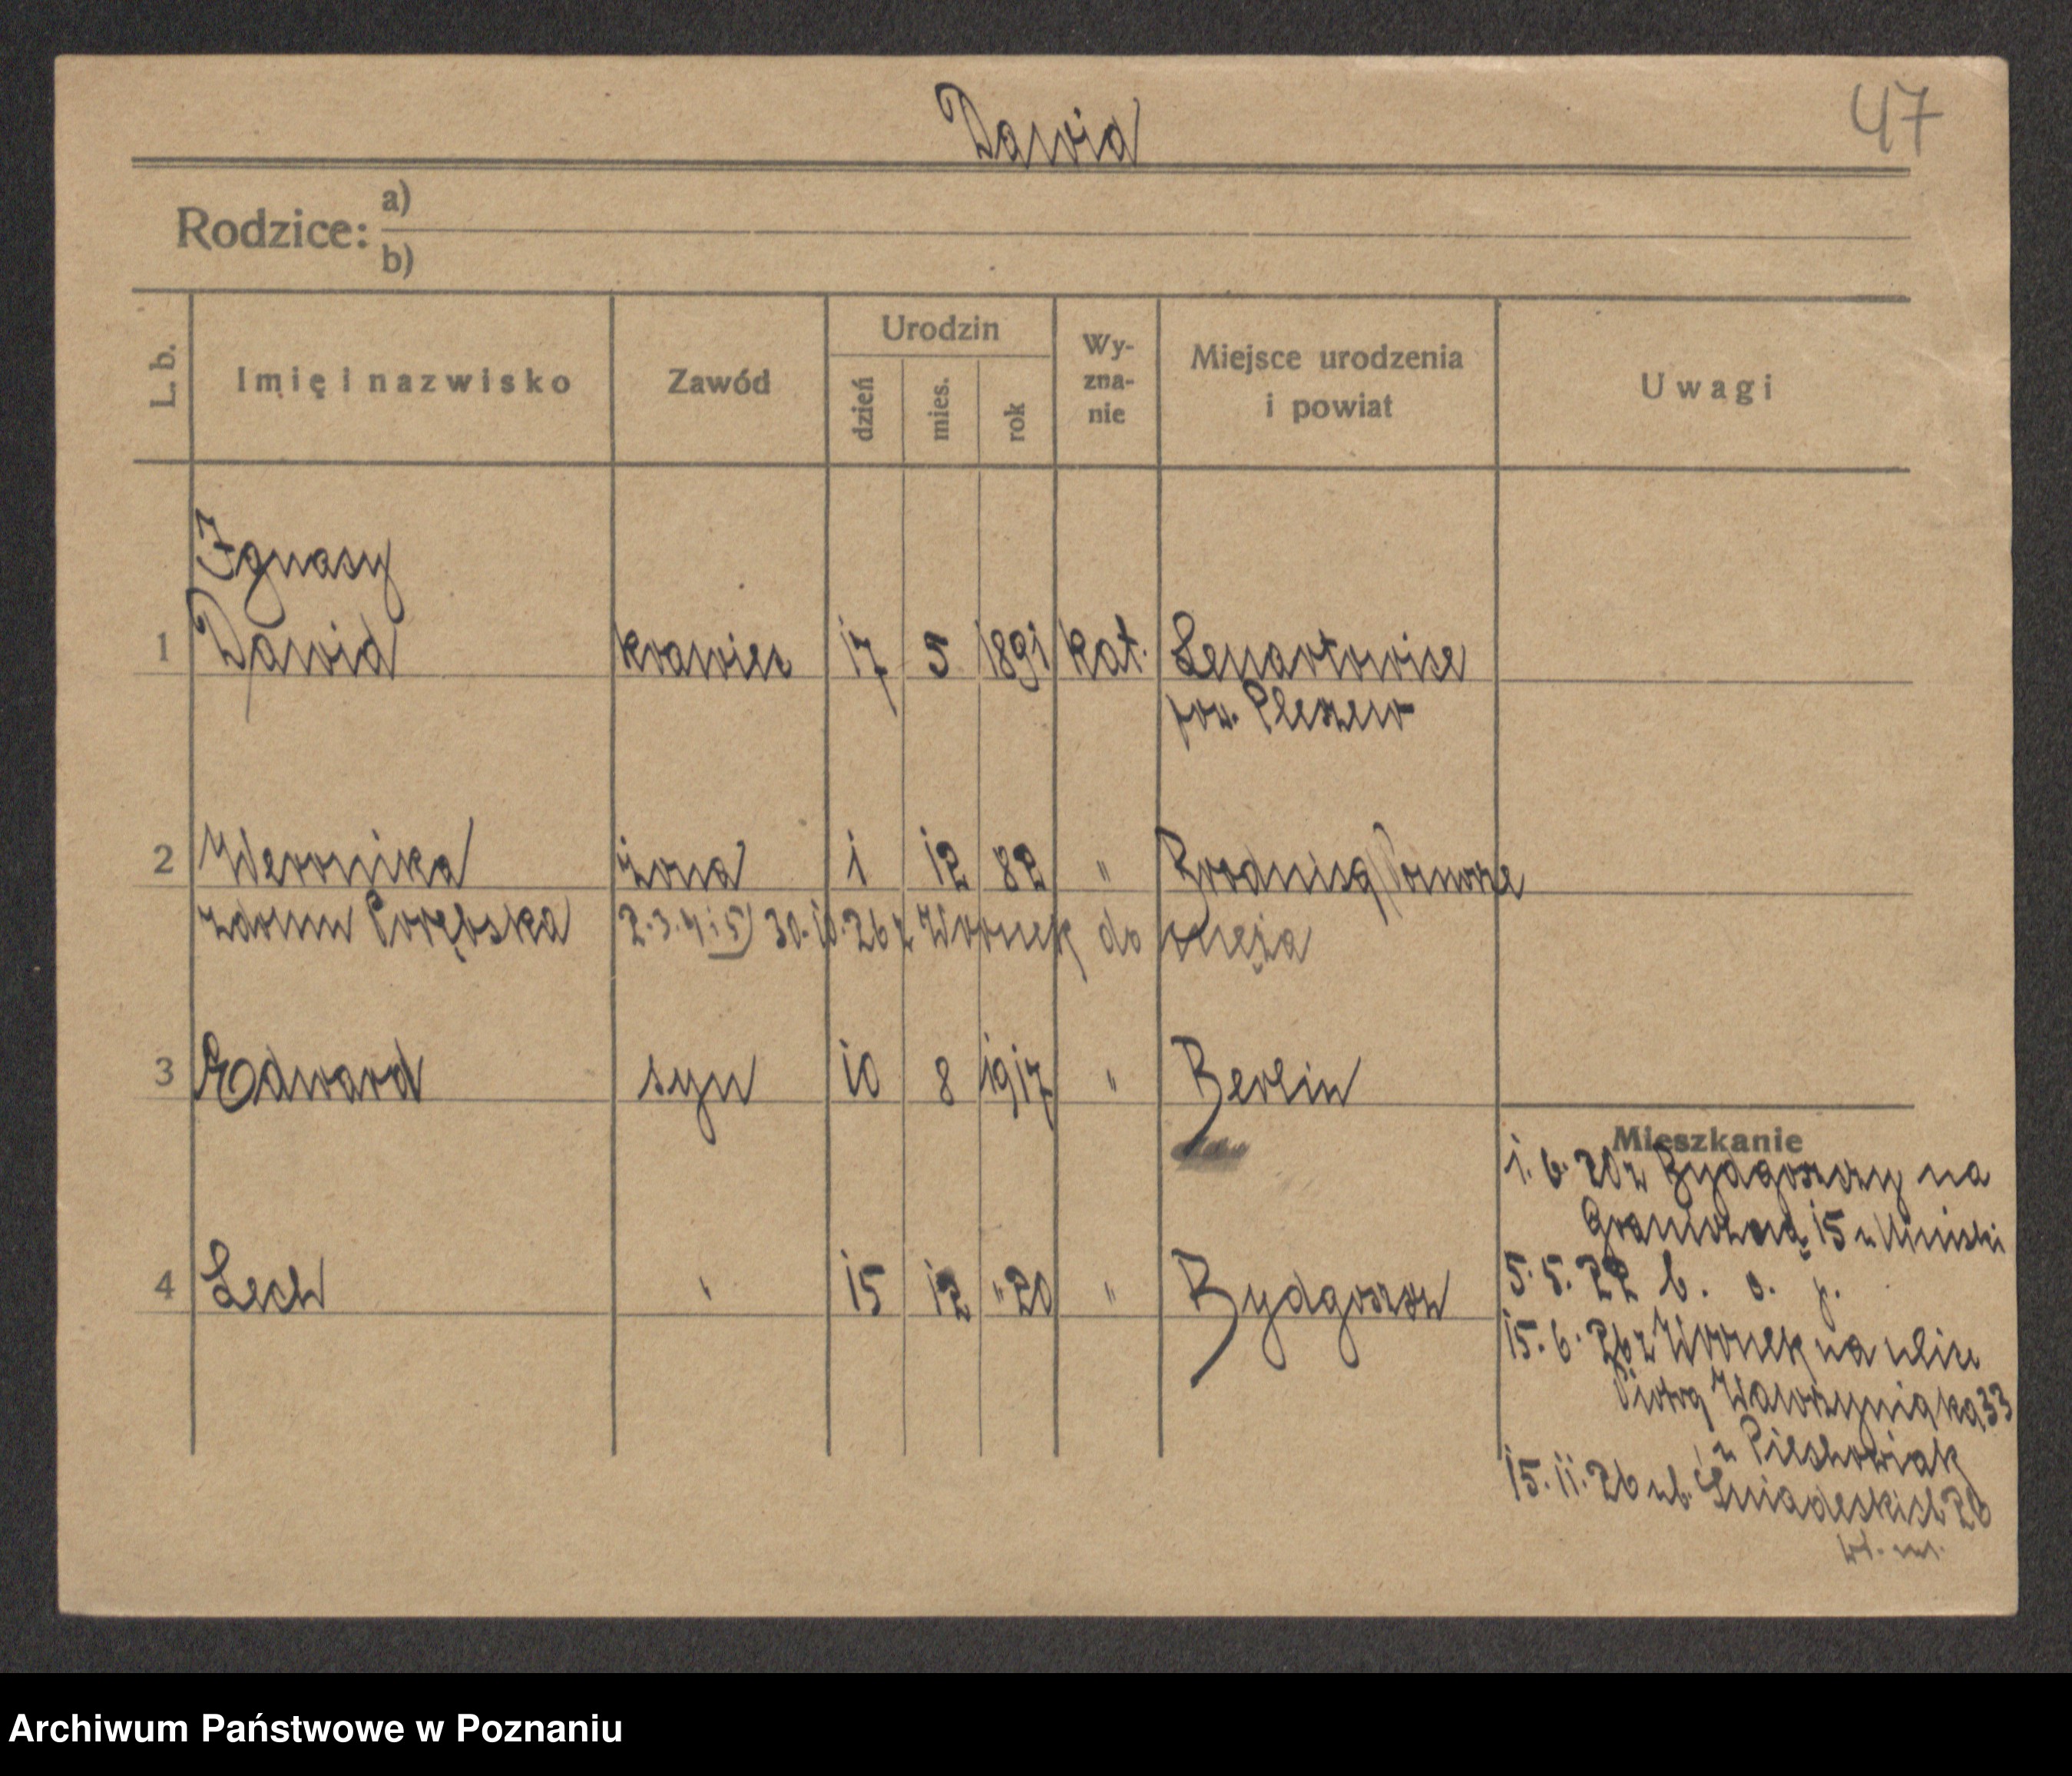 Dawid
47
Rodzice: a)
b)
L. b.
Imię i nazwisko
Zawód
Urodzin
dzień
mies.
rok
Wy-
zna-
nie
Miejsce urodzenia
i powiat
Uwagi
Ignacy
1 Dawid krawiec 17 5 1891 kat. Lenartowice
pow. Pleszew
2 Weronika żona 1 12 82 " Brodnica Pomorze
zdomu Porębska 2.3.4 i 5) 30.10.26 z Wronek do męża
3 Edward syn 10 8 1917 " Berlin
Mieszkanie
1. 6. 20 z Bydgoszczy na
Graniczną 15 u
4 Lech " 15 12 "20 " Bydgoszcz
5. 5. 22 b. a. p.
15. 6. 26 z Wronek na ulice
Piotra Wawrzyniaka 33
u Piechowiak
15. 11. 26 ul. Śniadeckich 26
Archiwum Państwowe w Poznaniu